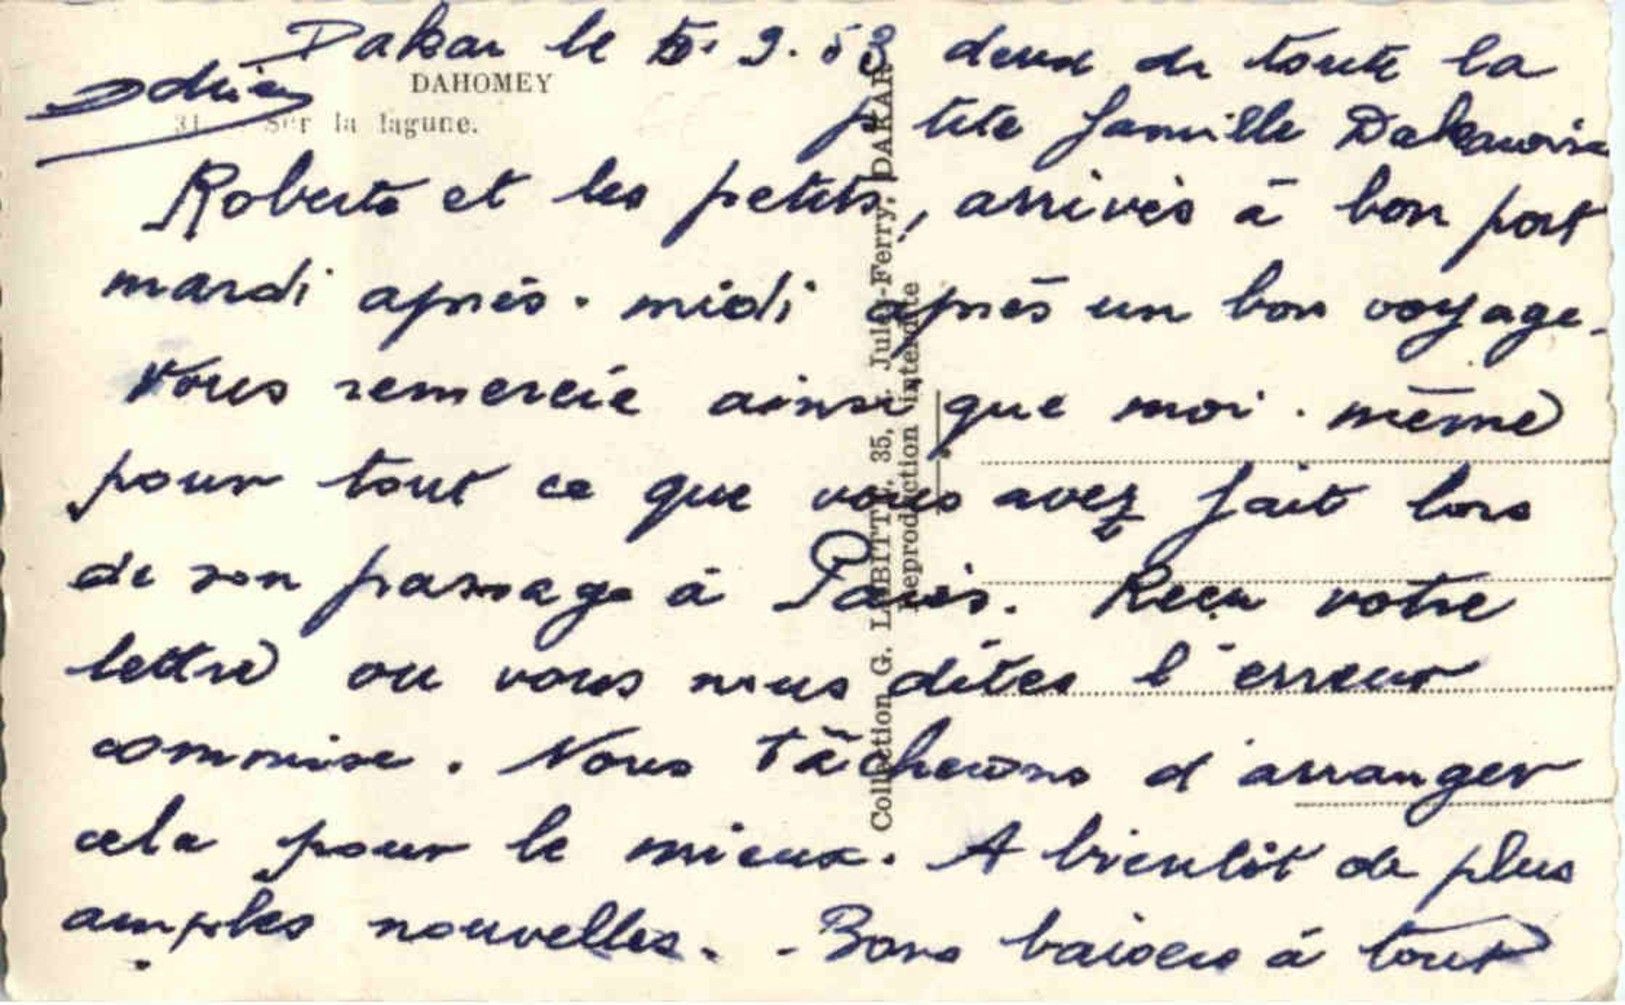 Dakar le 9.53
DAHOMEY
Sur la lagune.
Roberte et les petits, arrivés à bon port
mardi après-midi après un bon voyage.
Vous remercie ainsi que moi-même
pour tout ce que vous avez fait lors
de son passage à Paris. Reçu votre
lettre ou vous nous dîtes l'erreur
commise. Nous tâcherons d'arranger
cela pour le mieux. A bientôt de plus
amples nouvelles. - Bons baisers à tous
deux de toute la
petite famille Dakaroise
Adrien
Collection G. LABITTE, 35, r. Jules-Ferry, DAKAR
Reproduction interdite